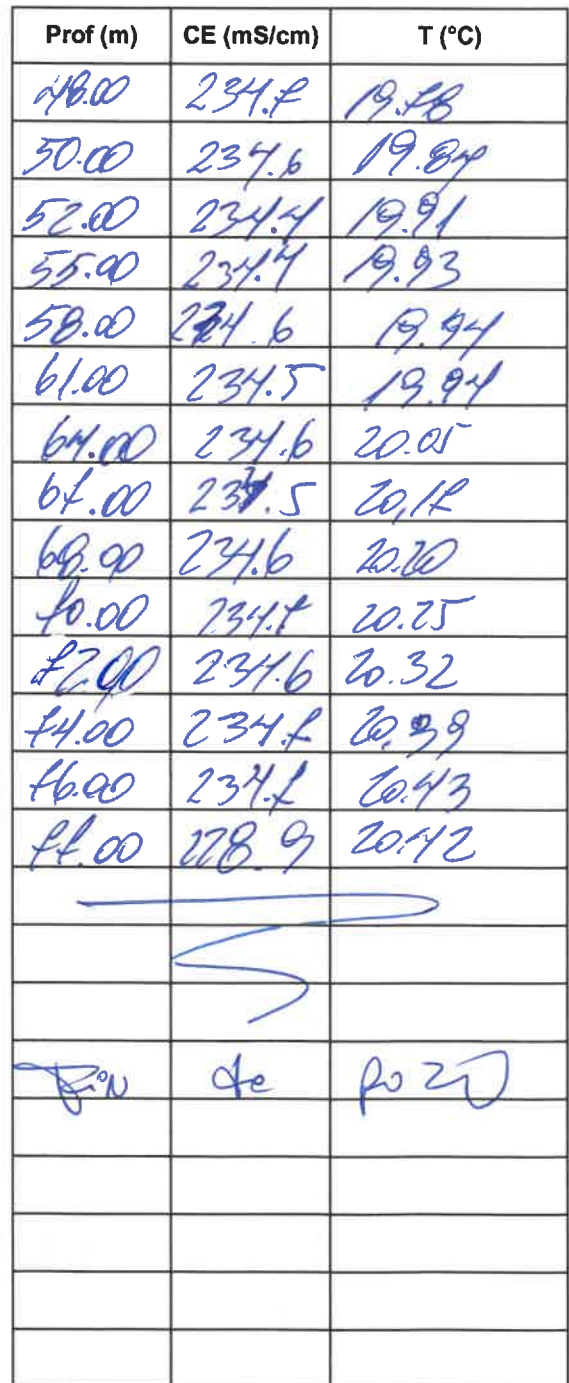 Prof (m) CE (mS/cm) T (°C)
48.00 234.7 19.78
50.00 234.6 19.84
52.00 234.4 19.91
55.00 234.4 19.93
58.00 234.6 19.94
61.00 234.5 19.94
64.00 234.6 20.05
67.00 234.5 20,17
68.00 234.6 20.20
70.00 234.7 20.25
72.00 234.6 20.32
74.00 234.7 20,39
76.00 234.7 20.43
77.00 228.9 20.42
Fin de pozo